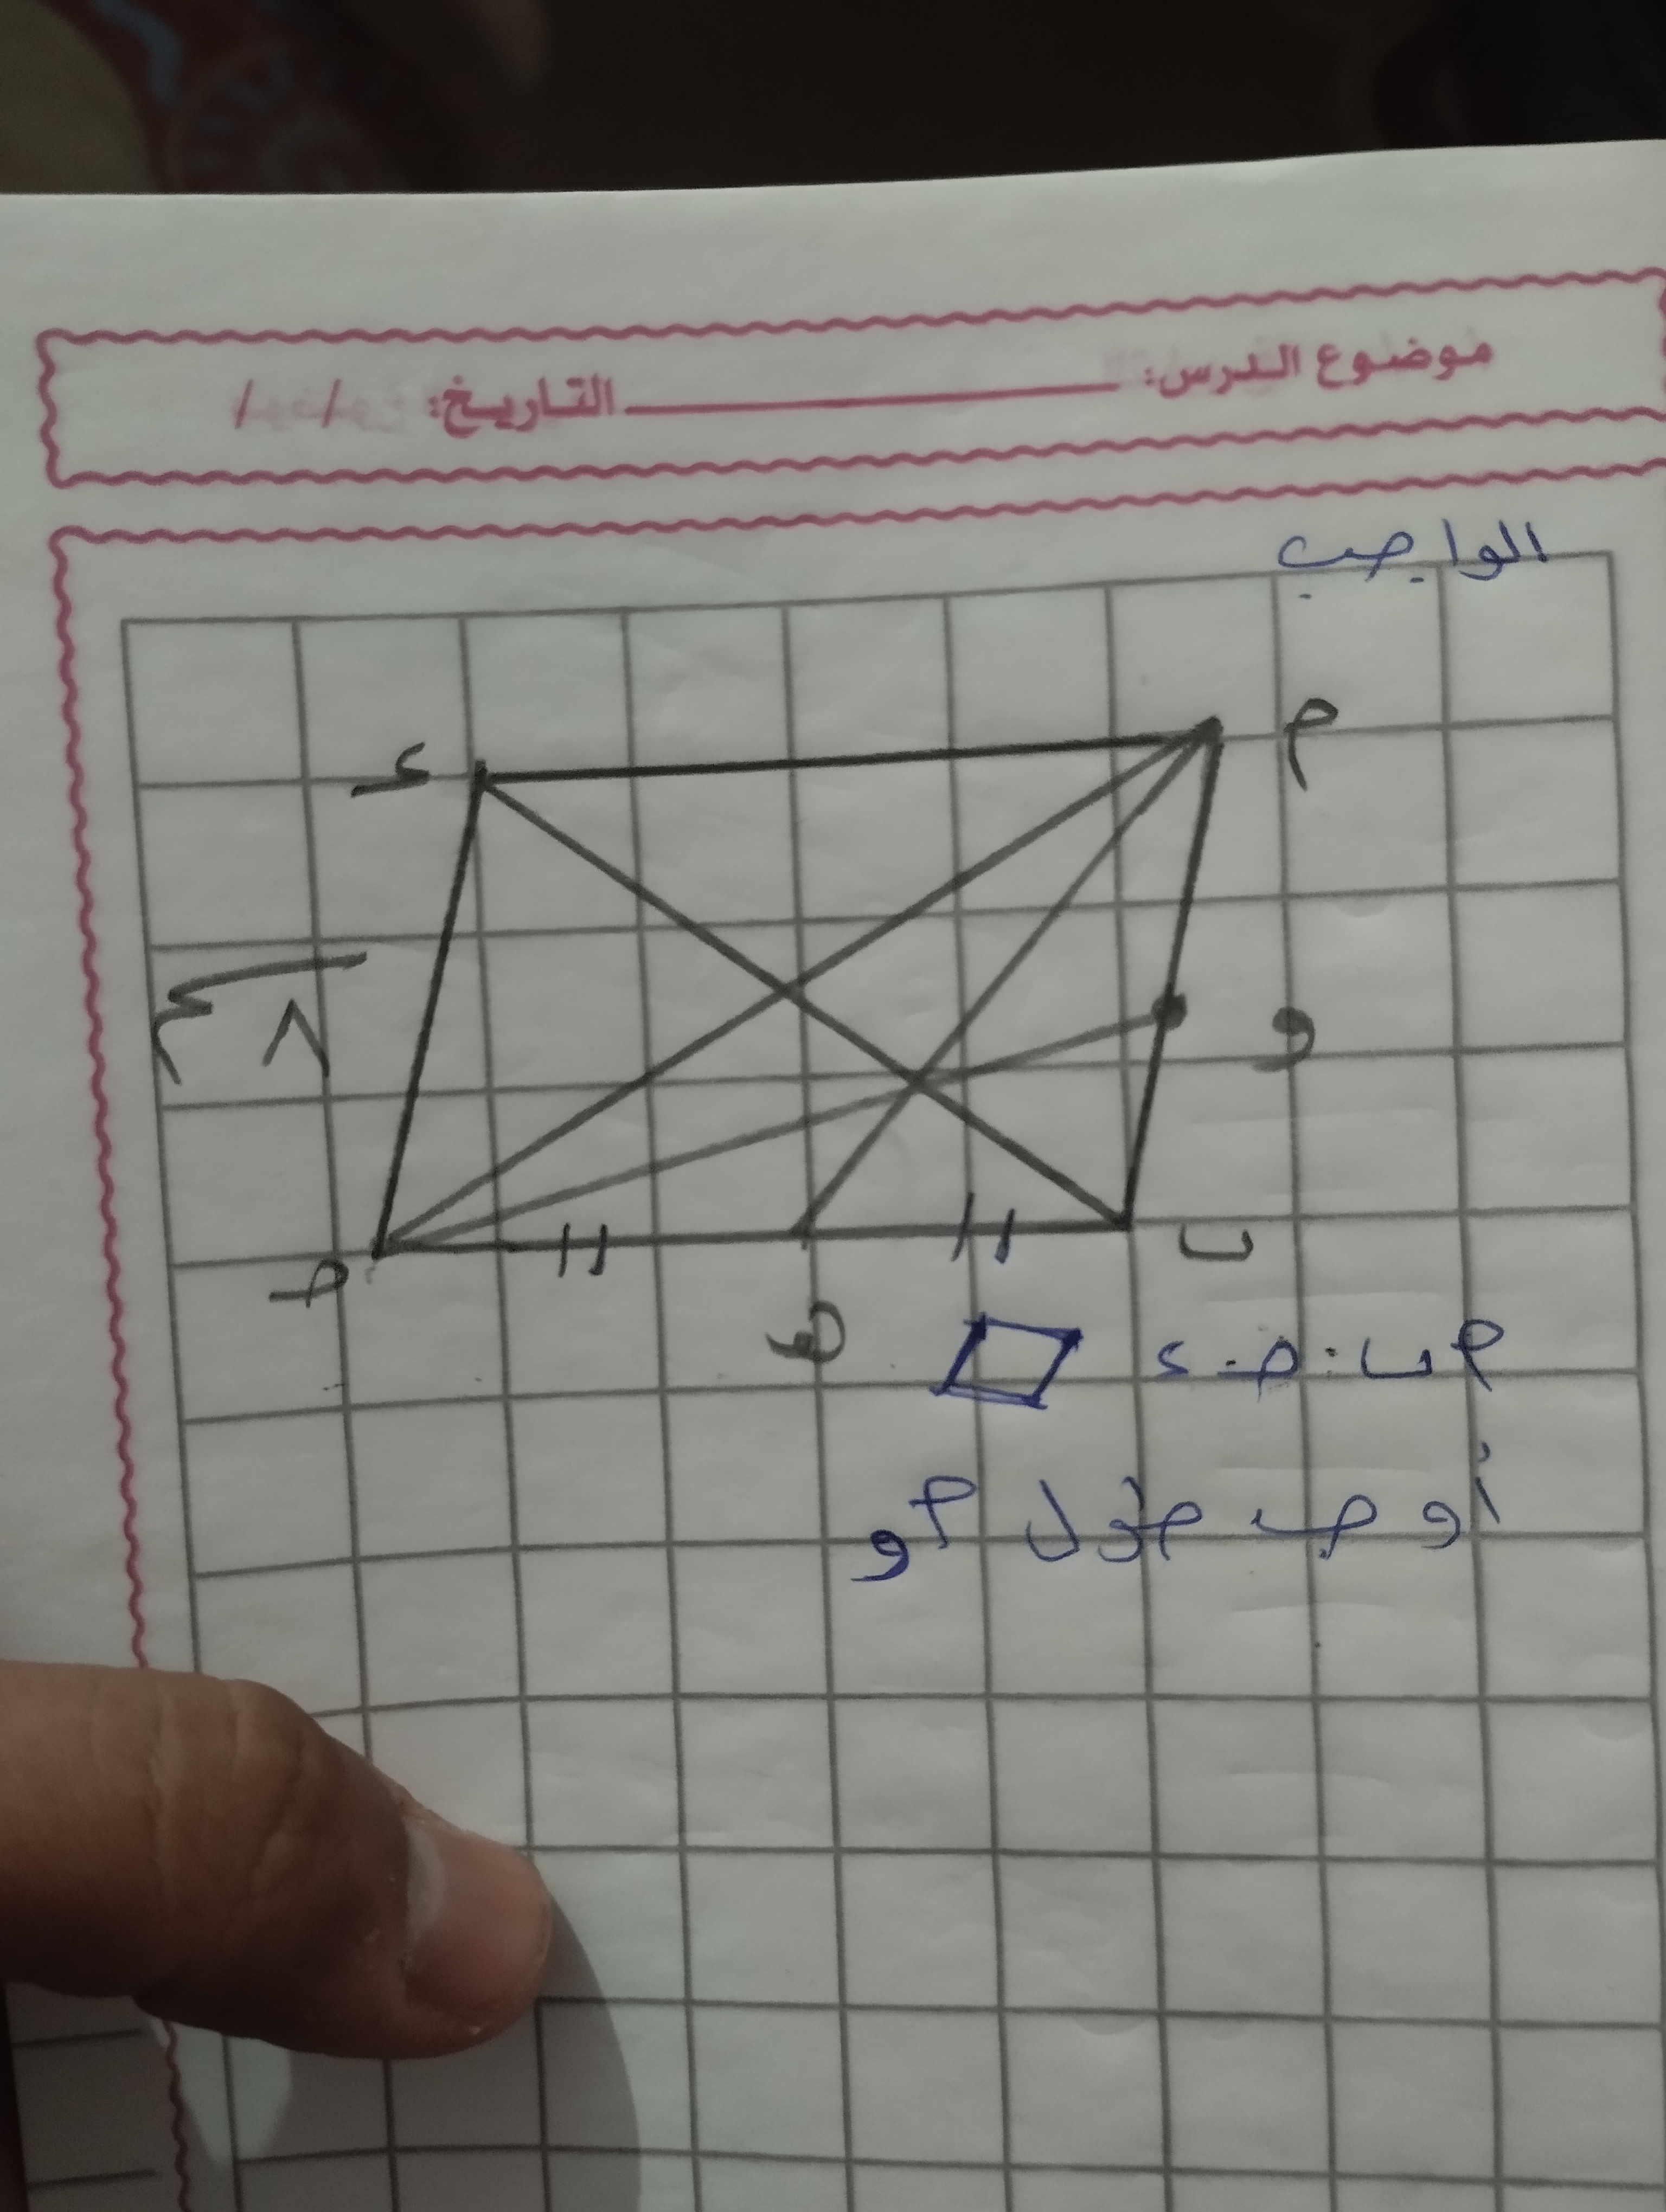 موضوع الدرس: التاريخ: / /
الواجب
م
ء
و
٨ سم
ب
هـ
جـ
م ب جـ ء
أوجد طول م و